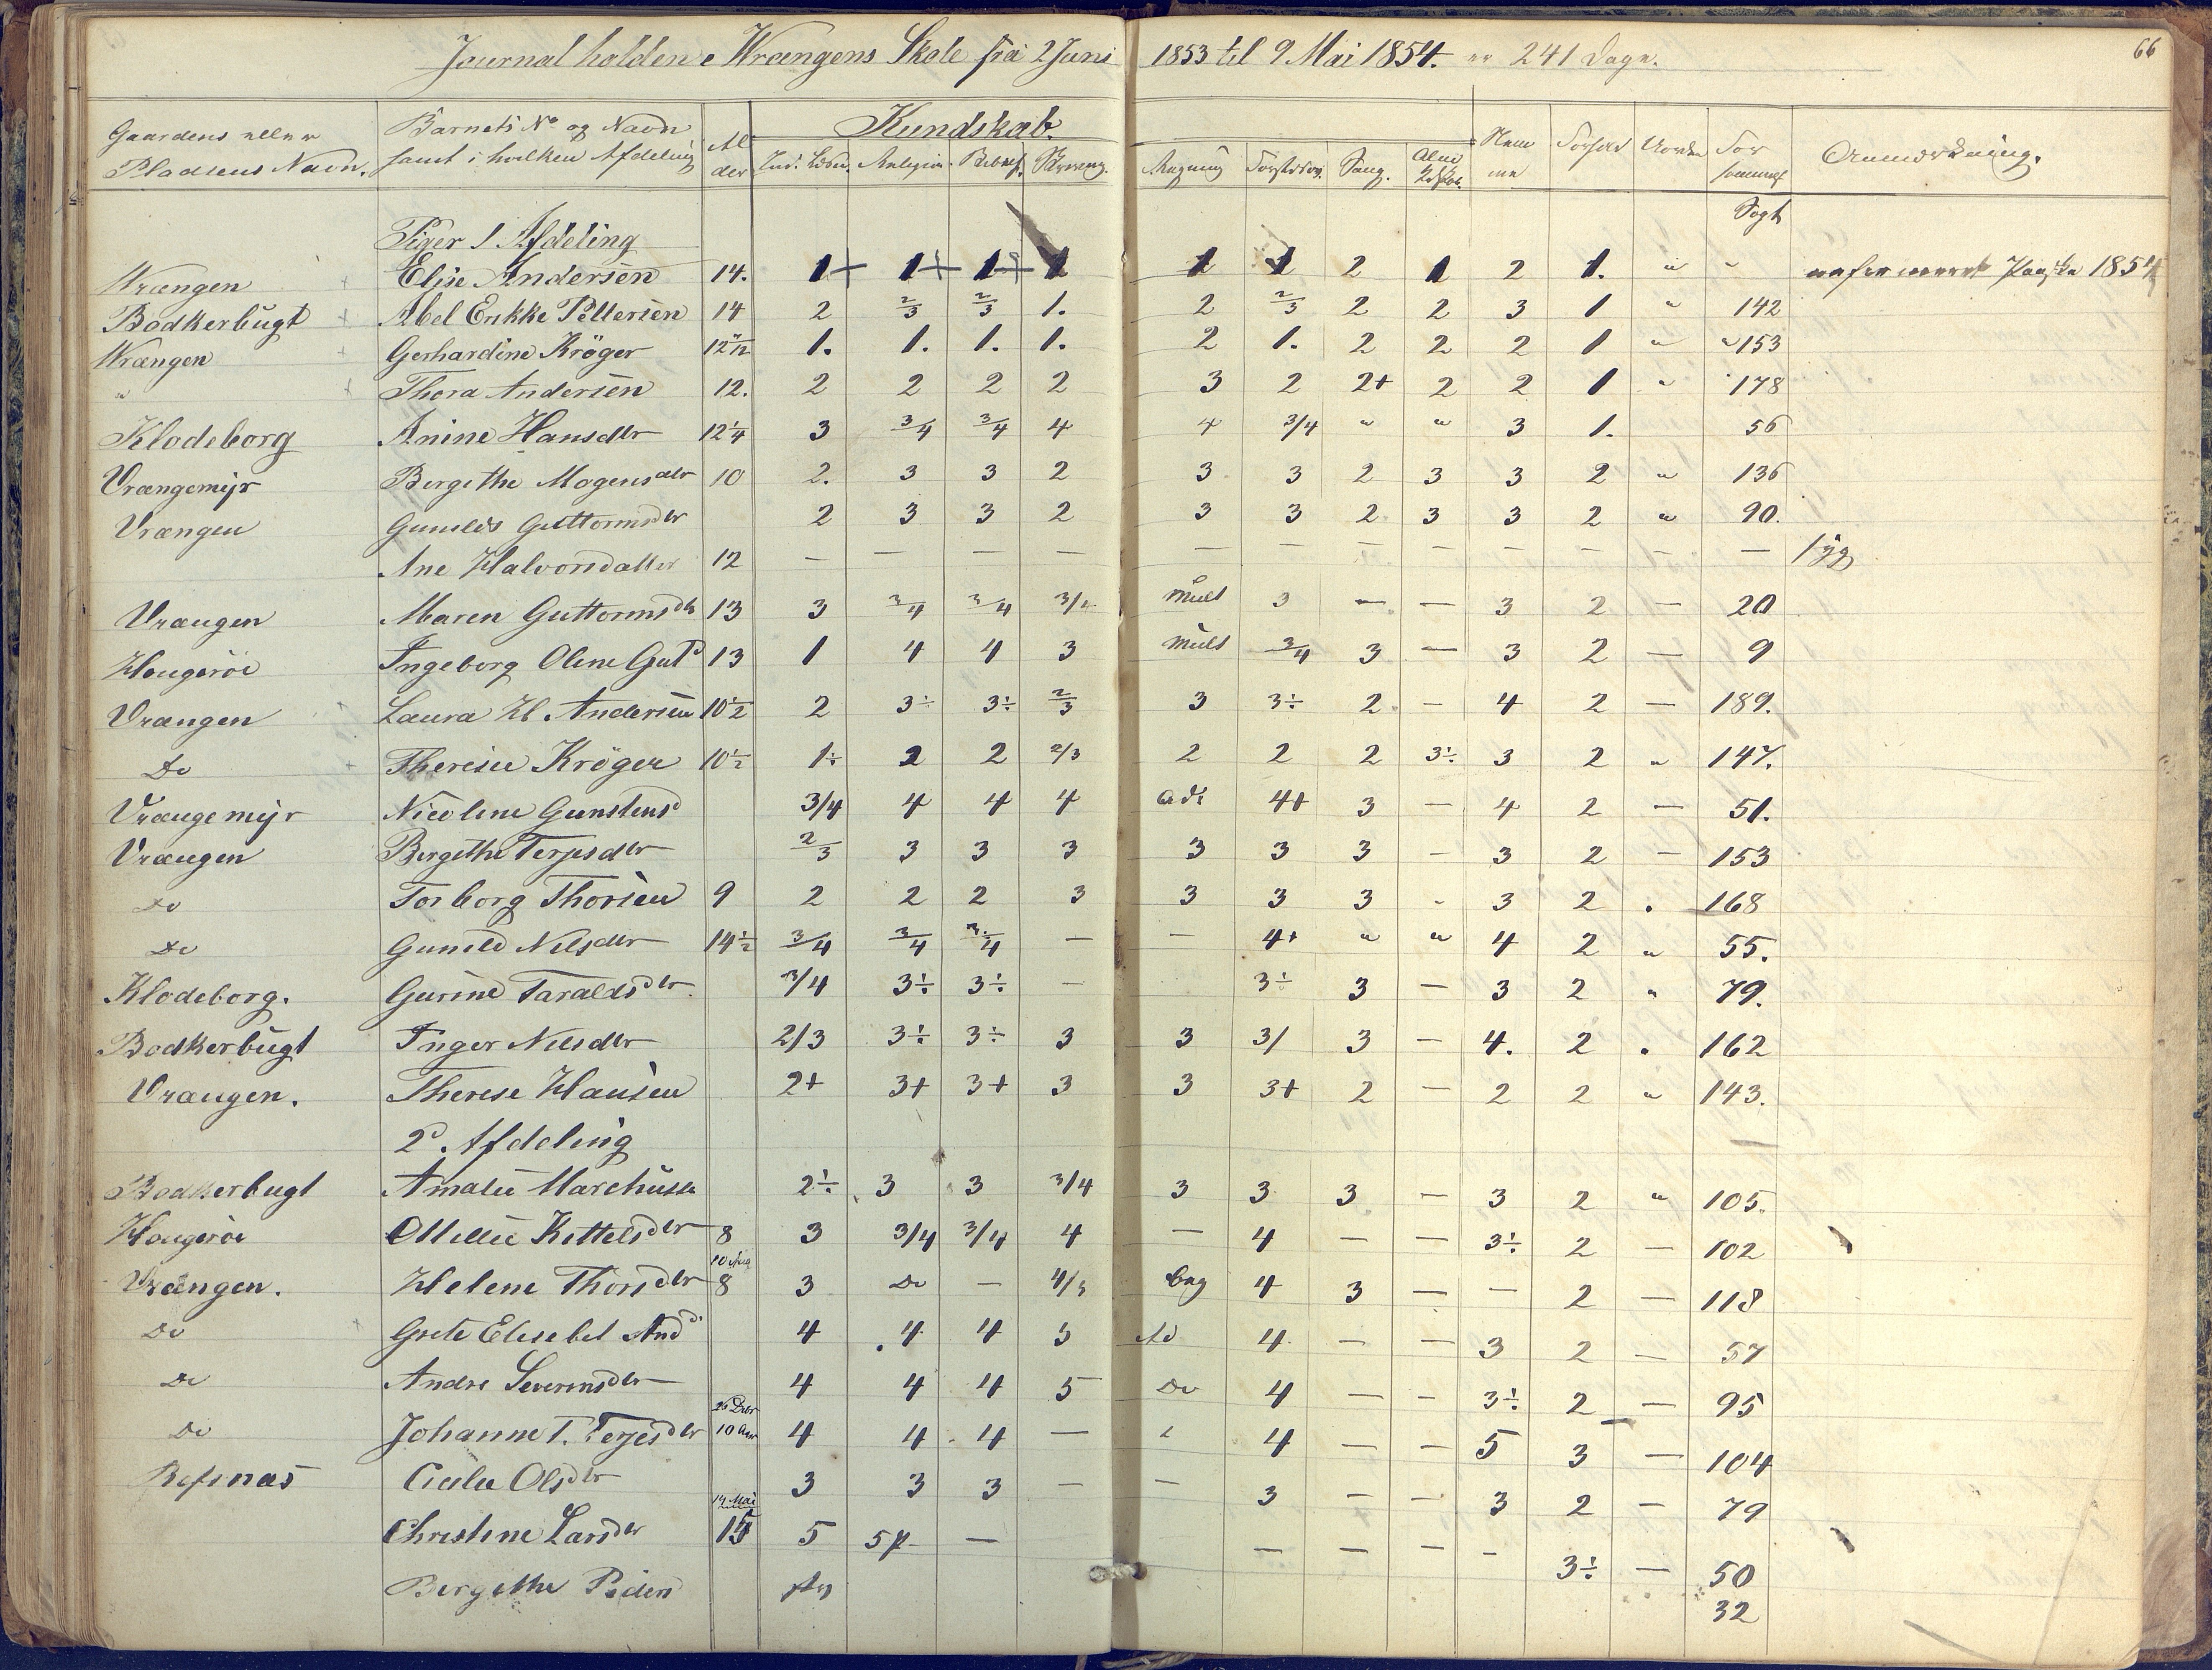 66
Journal holden i Wrængens Skole fra 2 Juni 1853 til 9 Mai 1854. er 241 Dage.
Gaardens eller Pladsens Navn. Barnets No og Navn samt i hvilken Afdeling Alder Kundskab. Nemme Forhold Uorden Forsømmel Anmærkning.
Ind. Læsn. Religion Skrivning. Regning Sang.
Søgt
Piger 1 Afdeling
Wrængen Elise Andersen 14. 1 1 1 1 1 1 2 1 2 1. " " Paaske 1854
Bødkerbugt Abel Erikke Pettersen 14 2 2/3 2/3 1. 2 2/3 2 2 3 1 " 142
Wrængen Gerhardine Krøger 12 11/12 1. 1. 1. 1. 2 1. 2 2 2 1 " " 153
" Thora Andersen 12. 2 2 2 2 3 2 2+ 2 2 1 " 178
Klodeborg Anine Hansdtr 12 1/4 3 3/4 3/4 4 4 3/4 " " 3 1. 56
Vrængemyr Bergithe Mogensdtr 10 2. 3 3 2 3 3 2 3 3 2 " 136
Vrængen Guttormsdtr 2 3 3 2 3 3 2 3 3 2 " 90.
Ane Halvorsdatter 12 — — — — — — — — — — — — syg
Vrængen Maren Guttormsdtr 13 3 3/4 3/4 3/4 mult 3 — — 3 2 — 20
Hougerøe Ingeborg Oline Gutd 13 1 4 4 3 mult 3/4 3 — 3 2 — 9
Vrængen Laura H. Andersen 10 1/2 2 3÷ 3÷ 2/3 3 3÷ 2. — 4 2 — 189.
Do Theresie Krøger 10 1/2 1÷ 2 2 2/3 2 2 2 3÷ 3 2 " 147.
Vrængemyr Nicoline Gunstensd 3/4 4 4 4 adi 4+ 3 — 4 2 — 51.
Vrængen Bergithe Terjesdtr 2/3 3 3 3 3 3 3 — 3 2 — 153
Do Torborg Thorsen 9 2 2 2 3 3 3 3 - 3 2 . 168
Do Gunild Nilsdtr 14 1/2 3/4 3/4 3/4 — — 4+ " " 4 2 " 55.
Klodeborg. Gurine Taraldsdtr 3/4 3÷ 3÷ — 3÷ 3 — 3 2 " 79.
Bødkerbugt Inger Nilsdtr 2/3 3÷ 3÷ 3 3 3/ 3 — 4. 2 . 162
Vrængen. Therese Hansen 2+ 3+ 3+ 3 3 3+ 2 — 2 2 " 143.
2d. Afdeling
Bødkerbugt Amalie 2÷ 3 3 3/4 3 3 3 — 3 2 " 105.
Hougerøe Kittelsdtr 8 3 3/4 3/4 4 — 4 — — 3÷ 2 — 102
Vrængen. Helene Thorsdtr 8 3 Do — beg 4 3 — — 2 — 118
Do Grete Elisebet And 4 4 4 5 Ad 4 — — 3 2 — 57
Do Andre Severinsdtr 4 4 4 5 Do 4 — — 3÷ 2 — 95
Do Johanne T. Terjesdtr 26 Dcbr 10 Aar 4 4 4 — 4 — — 5 3 — 104
Refsnæs Olsdtr 3 3 3 — — 3 — — 3 2 — 79
Christine Larsdtr 14 Mai 15 5 — — — — — 3÷ — 50
Bergithe Pedersd 32